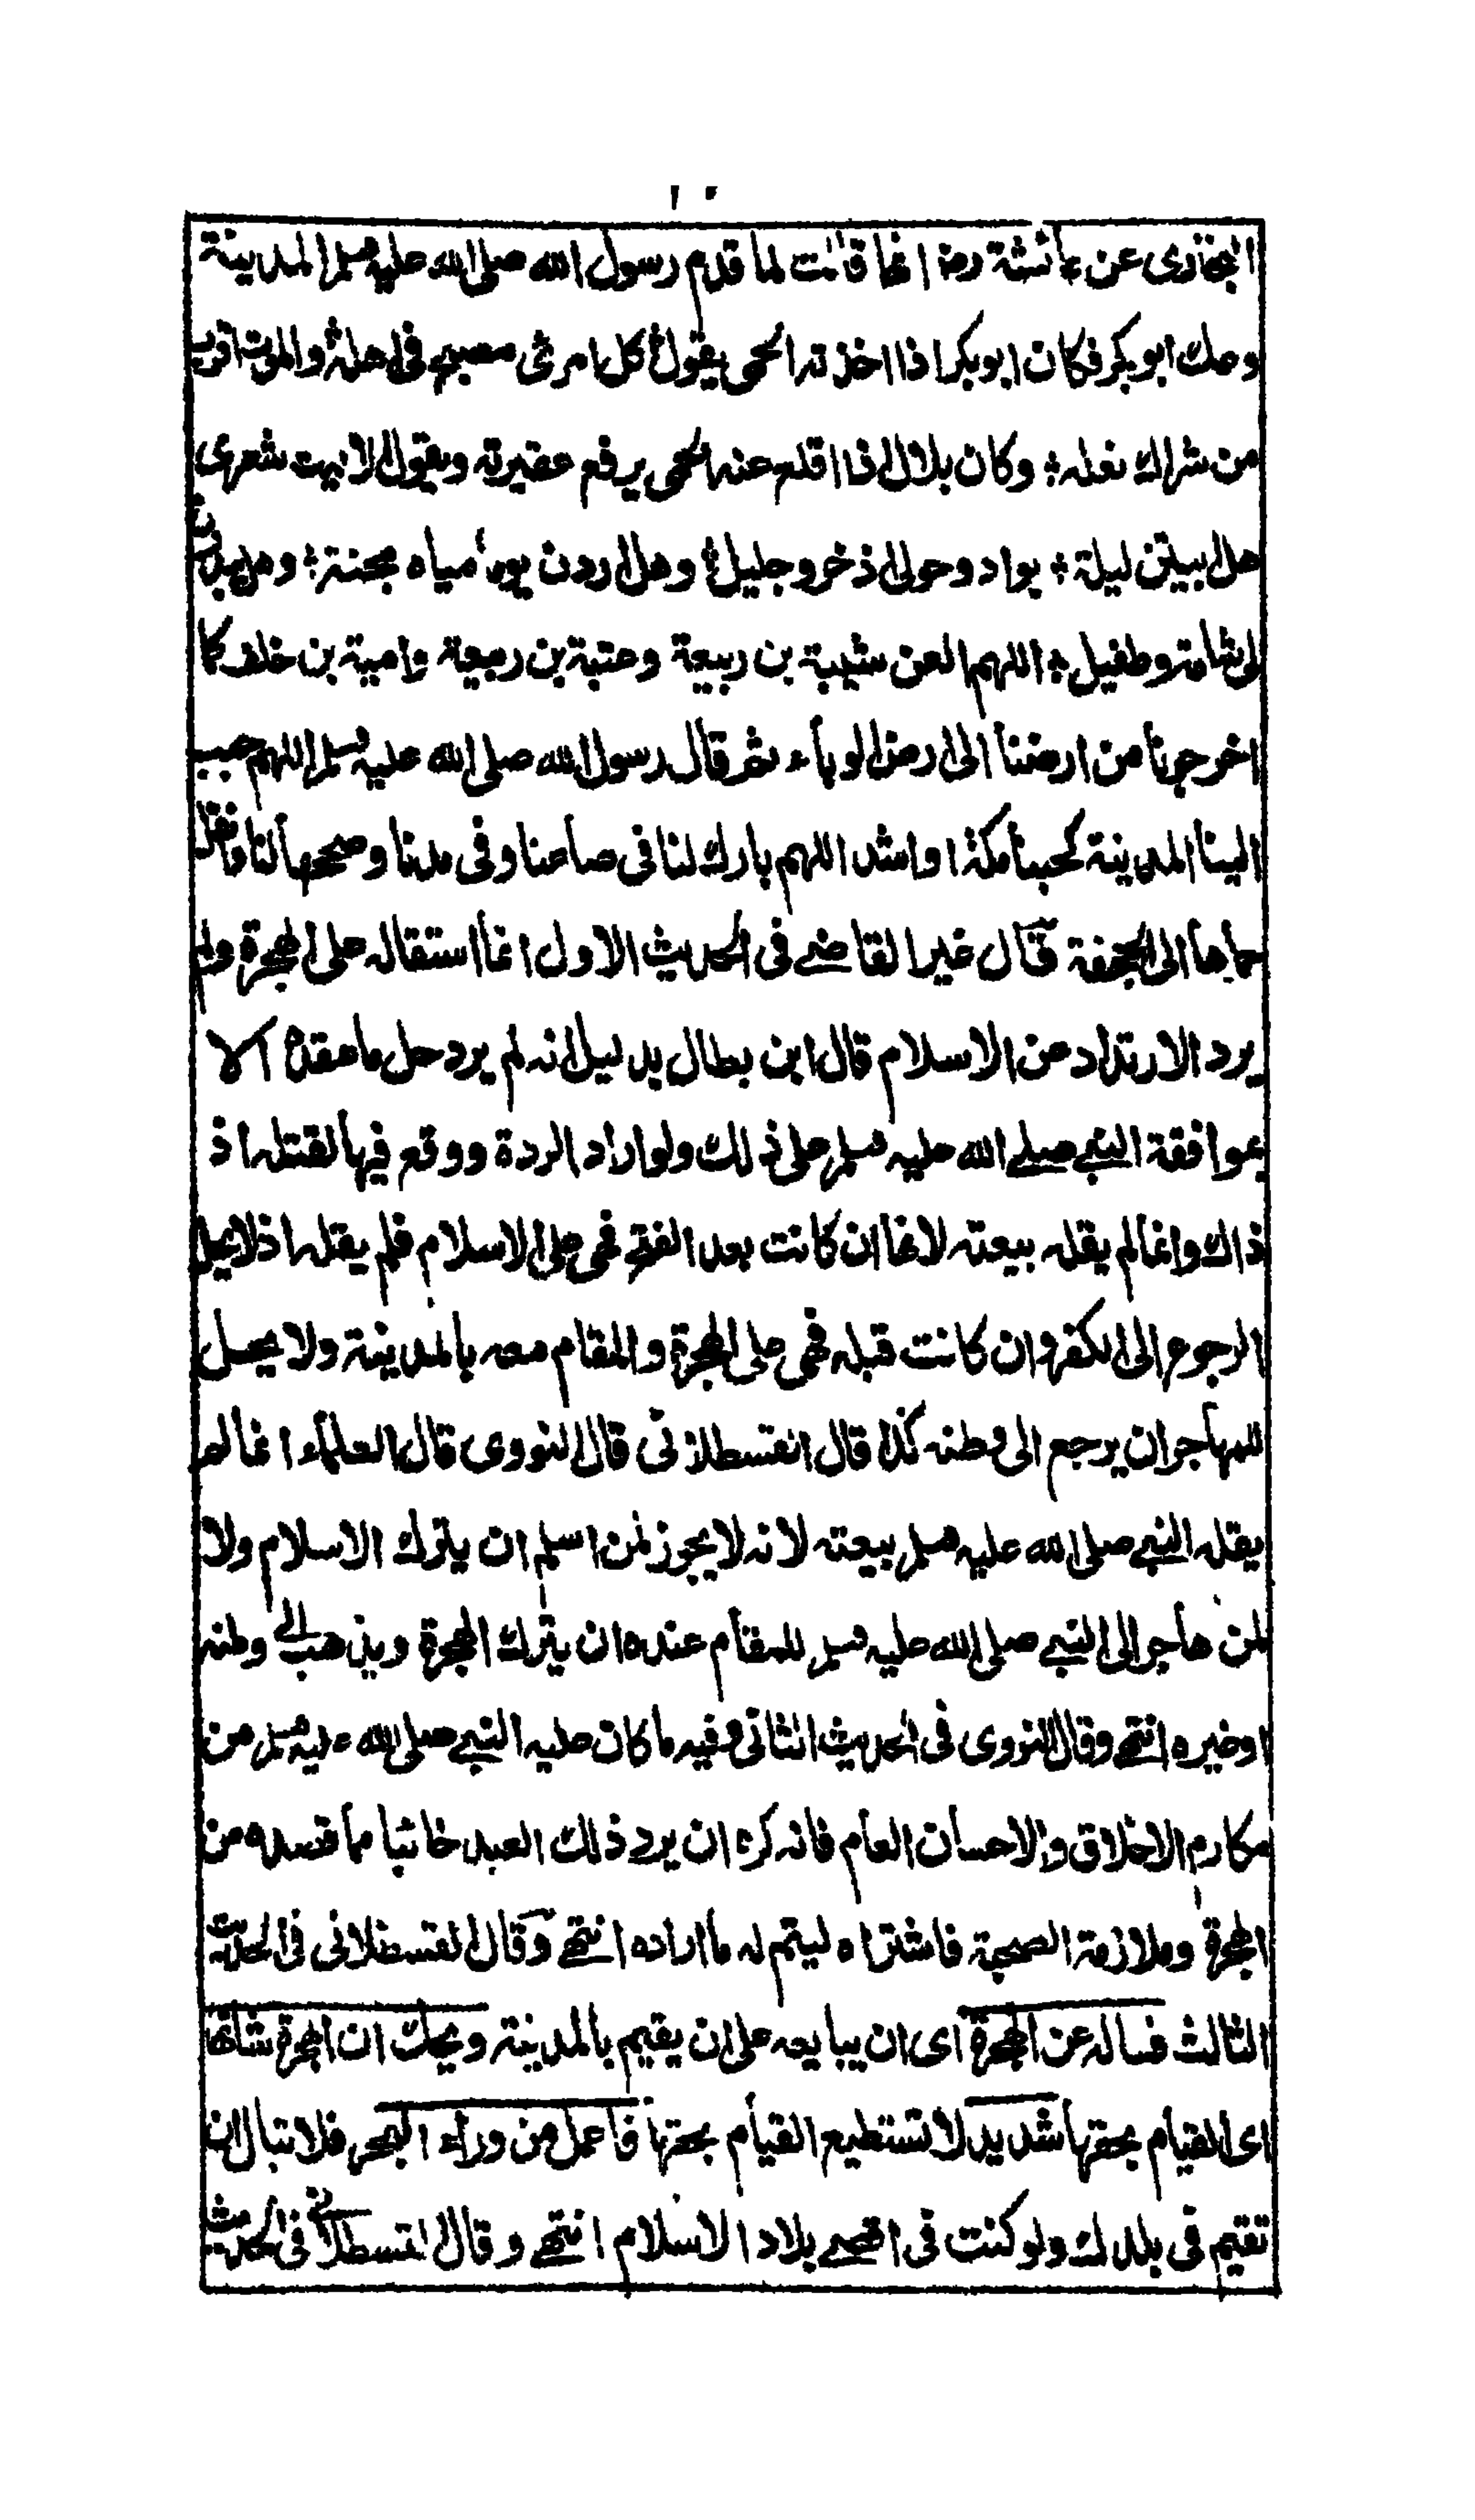 ١٠
البخاري عن عائشة رض انها قالت لما قدم رسول الله صلى الله عليه وسلم المدينة
وعك ابو بكر فكان ابو بكر اذا اخذته الحمى يقول كل امرئ مصبح في اهله والموت ادنى
من شراك نعله وكان بلال اذا اقلع عنه الحمى يرفع عقيرته ويقول الا ليت شعري
هل ابيتن ليلة بواد وحولي اذخر وجليل وهل اردن يوما مياه مجنة وهل يبدون
لي شامة وطفيل اللهم العن شيبة بن ربيعة وعتبة بن ربيعة وامية بن خلف كما
اخرجونا من ارضنا الى ارض الوباء ثم قال رسول الله صلى الله عليه وسلم اللهم حبب
الينا المدينة كحبنا مكة او اشد اللهم بارك لنا في صاعنا وفي مدنا وصححها لنا وانقل
حماها الى الجحفة قال غير القاضي في الحديث الاول انما استقاله على الهجرة ولم
يرد الارتداد عن الاسلام قال ابن بطال بدليل انه لم يرد حل ما عقده الا
بموافقة النبي صلى الله عليه وسلم على ذلك ولو اراد الردة ووقع فيها لقتله اذ
ذاك وانما لم يقله بيعته لانها ان كانت بعد الفتح فهي على الاسلام فلم يقله اذ لا يحل
الرجوع الى الكفر وان كانت قبله فهي على الهجرة والمقام معه بالمدينة ولا يحل
للمهاجر ان يرجع الى وطنه كذا قال القسطلاني قال النووي قال العلماء انما لم
يقله النبي صلى الله عليه وسلم بيعته لانه لا يجوز لمن اسلم ان يترك الاسلام ولا
لمن هاجر الى النبي صلى الله عليه وسلم للمقام عنده ان يترك الهجرة ويذهب الى وطنه
او غيره انتهى وقال النووي في الحديث الثاني فيه ما كان عليه النبي صلى الله عليه وسلم من
مكارم الاخلاق والاحسان العام فانه كره ان يرد ذلك العبد خائبا مما قصده من
الهجرة وملازمة الصحبة فاشتراه ليتم له ما اراده انتهى وقال القسطلاني في الحديث
الثالث فساله عن الهجرة اى ان يبايعه على ان يقيم بالمدينة ويحك ان الهجرة شانها
اى القيام بحقها شديد لا تستطيع القيام بحقها فاعمل من وراء البحر فلا تبال ان
تقيم في بلدك ولو كنت في اقصى بلاد الاسلام انتهى وقال القسطلاني في الحديث